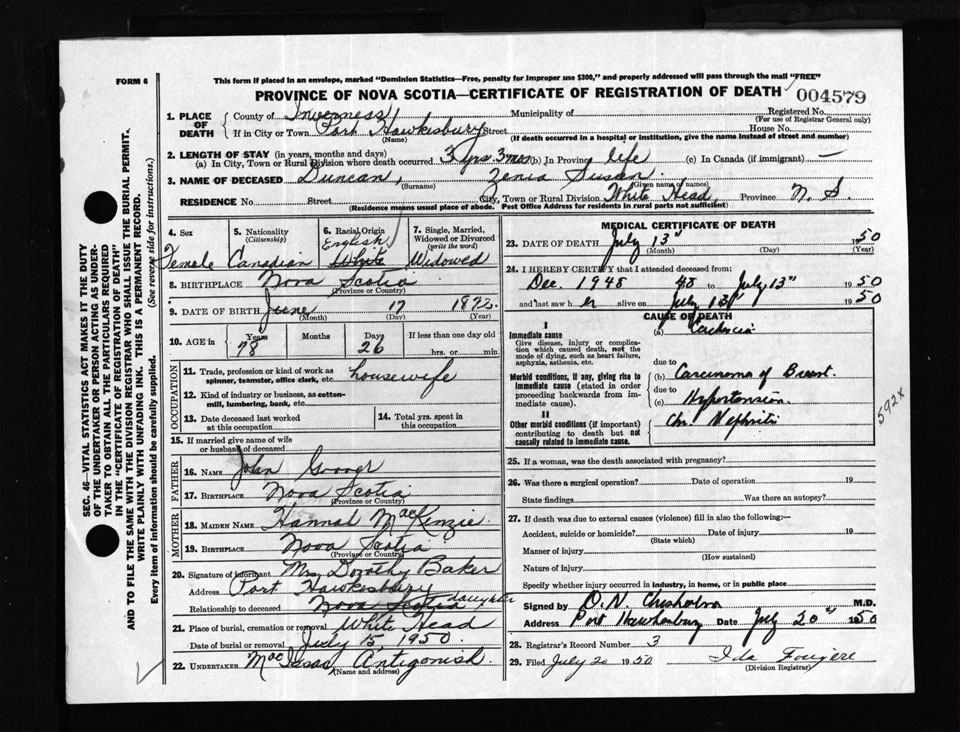 FORM 6
This form if placed in an envelope, marked "Dominion Statistics—Free, penalty for improper use $300," and properly addressed will pass through the mail "FREE"
PROVINCE OF NOVA SCOTIA—CERTIFICATE OF REGISTRATION OF DEATH 004579
1. PLACE OF DEATH
County of Inverness Municipality of Registered No.
(For use of Registrar General only)
If in City or Town Port Hawkesbury Street House No.
(Name) (If death occurred in a hospital or institution, give the name instead of street and number)
2. LENGTH OF STAY (in years, months and days)
(a) In City, Town or Rural Division where death occurred 3 yrs. 3 mos (b) In Province life (c) In Canada (if immigrant) —
3. NAME OF DECEASED Duncan, Zenia Susan.
(Surname) (Given name or names)
RESIDENCE No. Street City, Town or Rural Division White Head, Province N. S.
(Residence means usual place of abode. Post Office Address for residents in rural parts not sufficient)
4. Sex 5. Nationality (Citizenship) 6. Racial Origin 7. Single, Married, Widowed or Divorced (write the word)
English
Female Canadian White Widowed
8. BIRTHPLACE Nova Scotia
(Province or Country)
9. DATE OF BIRTH June 17 1872.
(Month) (Day) (Year)
10. AGE in Years Months Days If less than one day old
78 26 hrs. or min.
OCCUPATION
11. Trade, profession or kind of work as spinner, teamster, office clerk, etc. housewife
12. Kind of industry or business, as cotton-mill, lumbering, bank, etc.
13. Date deceased last worked at this occupation
14. Total yrs. spent in this occupation
15. If married give name of wife or husband of deceased
FATHER
16. NAME John
17. BIRTHPLACE Nova Scotia
(Province or Country)
MOTHER
18. MAIDEN NAME Hannah MacKenzie.
19. BIRTHPLACE Nova Scotia
(Province or Country)
20. Signature of informant Mrs Dorothy Baker
Address Port Hawkesbury
Relationship to deceased Nova Scotia daughter
21. Place of burial, cremation or removal White Head
Date of burial or removal July 15, 1950.
22. UNDERTAKER MacIsaac, Antigonish.
(Name and address)
MEDICAL CERTIFICATE OF DEATH
23. DATE OF DEATH July 13" 1950
(Month) (Day) (Year)
24. I HEREBY CERTIFY that I attended deceased from:
Dec. 1948 48 to July 13" 1950
and last saw her alive on July 13" 1950
CAUSE OF DEATH
I
Immediate cause
Give disease, injury or complication which caused death, not the mode of dying, such as heart failure, asphyxia, asthenia, etc.
(a)
due to
Morbid conditions, if any, giving rise to immediate cause (stated in order proceeding backwards from immediate cause).
(b) Carcinoma of Breast.
due to
(c) Hypertension.
II
Other morbid conditions (if important) contributing to death but not causally related to immediate cause.
Chr. Nephritis
592x
25. If a woman, was the death associated with pregnancy?
26. Was there a surgical operation? Date of operation 19
State findings Was there an autopsy?
27. If death was due to external causes (violence) fill in also the following:—
Accident, suicide or homicide? Date of injury 19
(State which)
Manner of injury
(How sustained)
Nature of injury
Specify whether injury occurred in industry, in home, or in public place
Signed by D. N. Chisholm M.D.
Address Port Hawkesbury Date July 20" 1950
28. Registrar's Record Number 3
29. Filed July 20 1950 Ida Fougere
(Division Registrar)
SEC. 46—VITAL STATISTICS ACT MAKES IT THE DUTY
OF THE UNDERTAKER OR PERSON ACTING AS UNDERTAKER
TO OBTAIN ALL THE PARTICULARS REQUIRED
IN THE "CERTIFICATE OF REGISTRATION OF DEATH"
AND TO FILE THE SAME WITH THE DIVISION REGISTRAR WHO SHALL ISSUE THE BURIAL PERMIT.
WRITE PLAINLY WITH UNFADING INK. THIS IS A PERMANENT RECORD.
Every item of information should be carefully supplied. (See reverse side for instructions.)